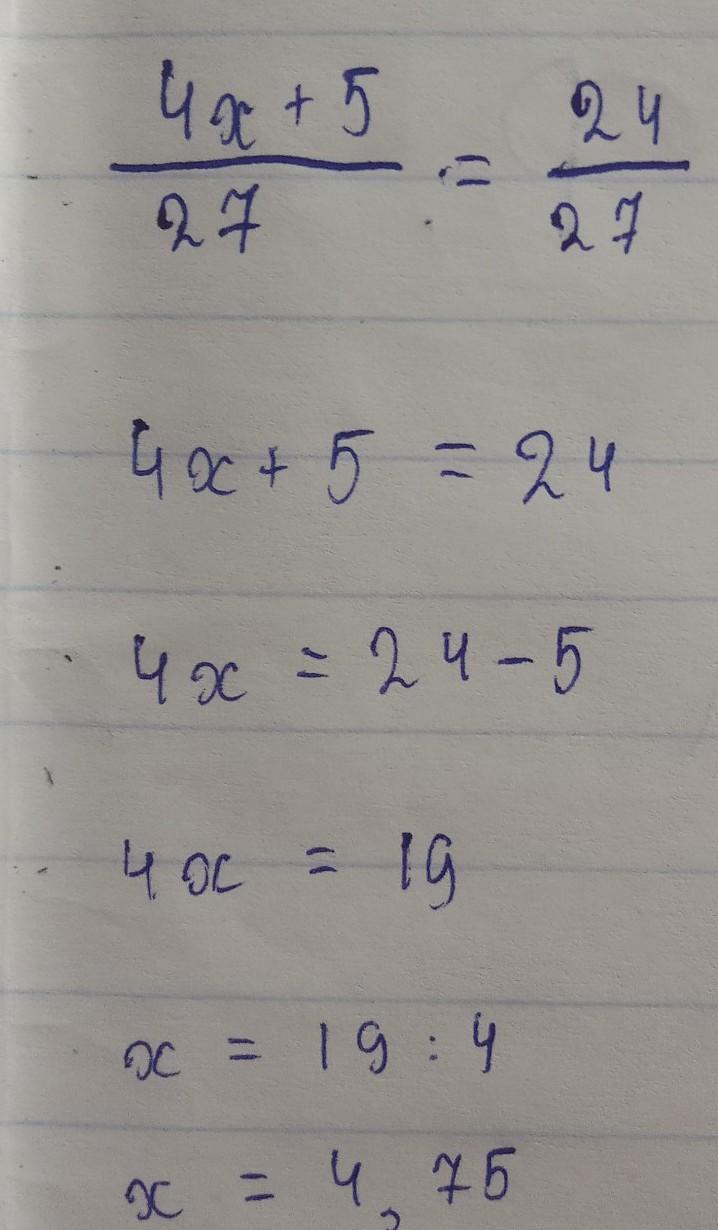 4x + 5 = 24
27 27
4x + 5 = 24
4x = 24 - 5
4x = 19
x = 19 : 4
x = 4,75